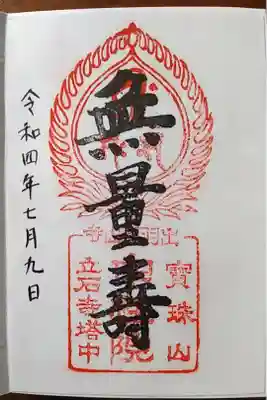 寶珠山
無量壽
院
立石寺塔中
令和四年七月九日